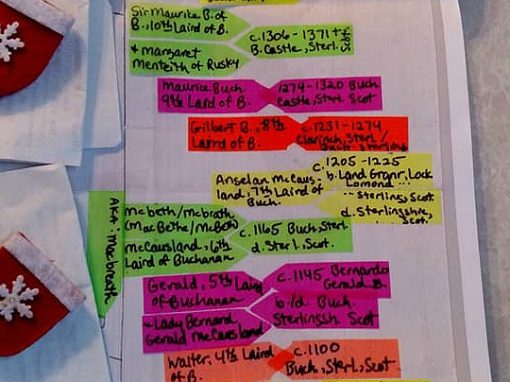 Sir Maurice B. of
B., 10th Laird of B.
c. 1306 - 1371 +
B. Castle, Sterl.
+ Margaret
Menteith of Rusky
Maurice Buch.
9th Laird of B.
1274-1320 Buch
Castle, Sterl. Scot
Gilbert B., 8th
Laird of B.
c. 1231-1274
Clarinch, Sterl /
Buch.
Anselan McCaus-
land, 7th Laird of
Buch.
c. 1205-1225
b. Land Granr, Lock
Lomond ...
Sterling, Scot.
d. Sterlingshire,
Scot.
AKA: Macbreath
McBeth/McBrath
(MacBethe/McBeth)
McCausland, 6th
Laird of Buchanan
c. 1165 Buch, Sterl
d. Sterl, Scot.
Gerald, 5th Laird
of Buchanan
c. 1145 Bernardo
Gerald B.
+ Lady Bernard
Gerald McCausland
b./d. Buch.
Sterlingsh. Scot
Walter, 4th Laird
of B.
c. 1100
Buch, Sterl, Scot